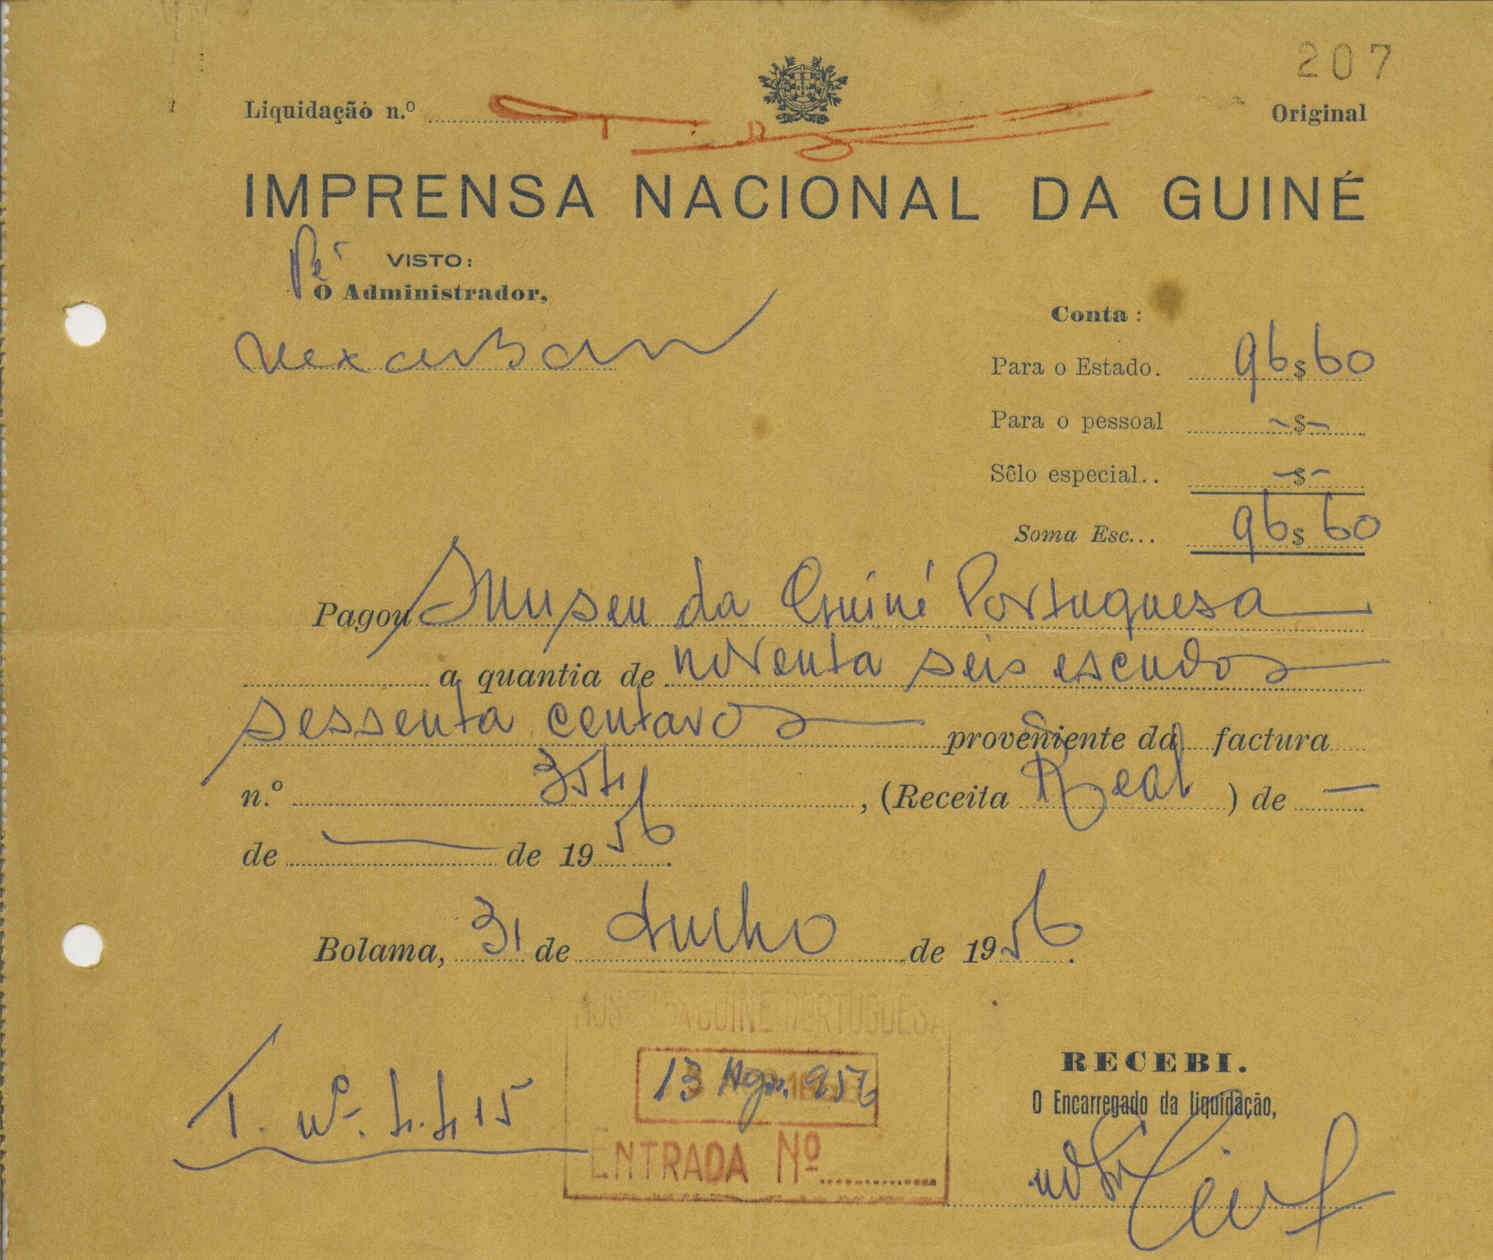 207
Liquidação n.º
Original
IMPRENSA NACIONAL DA GUINÉ
VISTO:
O Administrador,
Conta:
Para o Estado. 96$60
Para o pessoal -$-
Sêlo especial.. -$-
Soma Esc... 96$60
Pagou Museu da Guiné Portuguesa
a quantia de noventa seis escudos
sessenta centavos proveniente da factura
n.º 354, (Receita Real) de —
de — de 1956.
Bolama, 31 de Julho de 1956.
MUSEU DA GUINÉ PORTUGUESA
13 Ago. 956
ENTRADA Nº
T. nº. 4.415
RECEBI.
O Encarregado da liquidação,